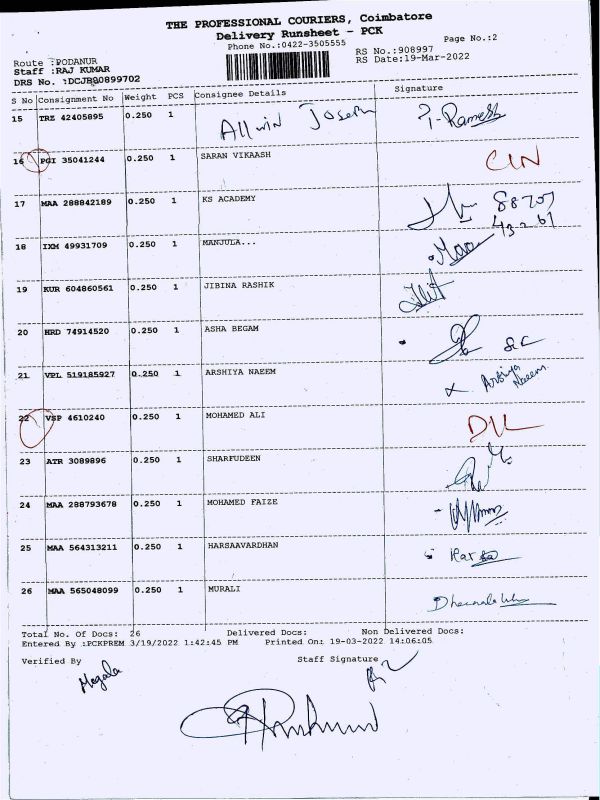 THE PROFESSIONAL COURIERS, Coimbatore
Delivery Runsheet - PCK
Phone No.:0422-3505555
Page No.:2
Route :PODANUR
RS No.:908997
Staff :RAJ KUMAR
RS Date:19-Mar-2022
DRS No. :DCJB00899702
S No Consignment No Weight PCS Consignee Details Signature
15 TRZ 42405895 0.250 1 Allwin Joseph T-Ramesh
16 PGI 35041244 0.250 1 SARAN VIKAASH CIN
17 MAA 288842189 0.250 1 KS ACADEMY 88707
43261
18 IXM 49931709 0.250 1 MANJULA...
19 KUR 604860561 0.250 1 JIBINA RASHIK
20 HRD 74914520 0.250 1 ASHA BEGAM
21 VPL 519185927 0.250 1 ARSHIYA NAEEM Arshiya
Naeem
22 VSP 4610240 0.250 1 MOHAMED ALI D\L
23 ATR 3089896 0.250 1 SHARFUDEEN
24 MAA 288793678 0.250 1 MOHAMED FAIZE
25 MAA 564313211 0.250 1 HARSAAVARDHAN
26 MAA 565048099 0.250 1 MURALI
Total No. Of Docs: 26 Delivered Docs: Non Delivered Docs:
Entered By :PCKPREM 3/19/2022 1:42:45 PM Printed On: 19-03-2022 14:06:05
Verified By Staff Signature
Megala